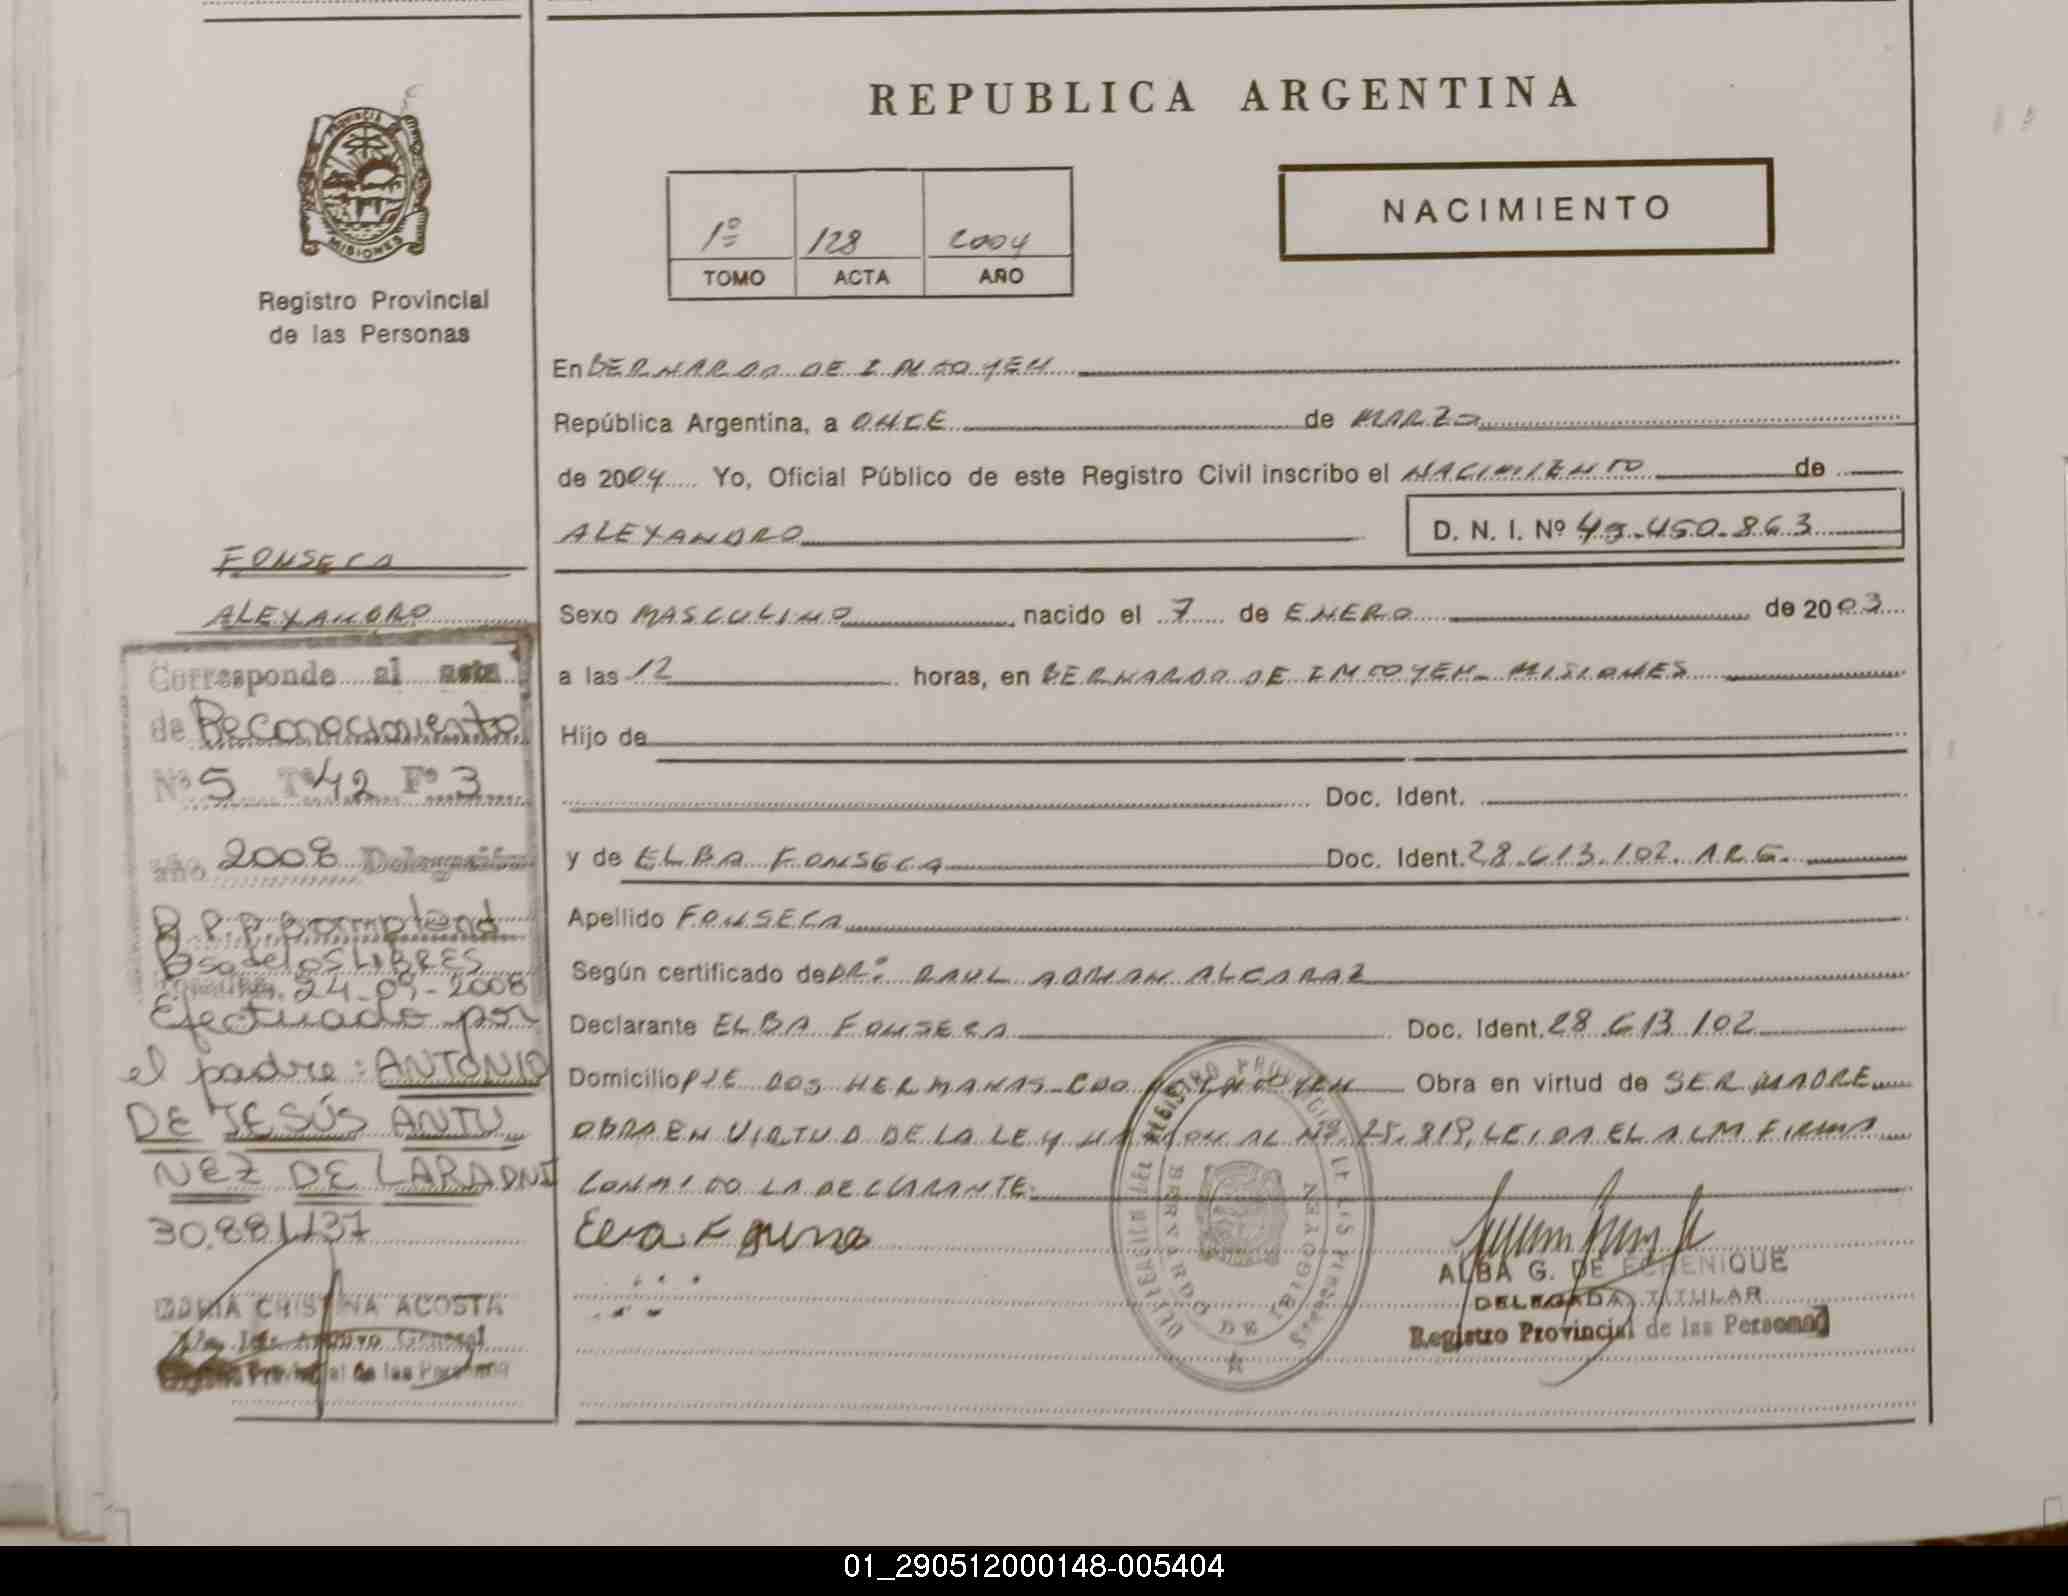 REPUBLICA ARGENTINA
PROVINCIA
MISIONES
Registro Provincial
de las Personas
1º 128 2004
TOMO ACTA AÑO
NACIMIENTO
En BERNARDO DE IRIGOYEN
República Argentina, a ONCE de MARZO
de 2004 Yo, Oficial Público de este Registro Civil inscribo el NACIMIENTO de
ALEXANDRO D. N. I. Nº 45.450.863
FONSECA
ALEXANDRO
Sexo MASCULINO nacido el 7 de ENERO de 2003
a las 12 horas, en BERNARDO DE IRIGOYEN - MISIONES
Hijo de
Doc. Ident.
y de ELBA FONSECA Doc. Ident. 28.613.102. ARG.
Apellido FONSECA
Según certificado de DR: RAUL ALCARAZ
Declarante ELBA FONSECA Doc. Ident. 28 613 102
Domicilio PJE DOS HERMANAS Obra en virtud de SER MADRE
OBRA EN VIRTUD DE LA LEY NACIONAL Nº 25.819, LEIDA EL ACTA FIRMA
CONMIGO LA DECLARANTE.
Corresponde al acta
de Reconocimiento
Nº 5 Tº 42 Fº 3
año 2008 Delegación
R.P.P.
Pso de los LIBRES
24-09-2008
Efectuado por
el padre: ANTONIO
DE JESÚS ANTU
NEZ DE LARA DNI
30.881137
MARIA CRISTINA ACOSTA
Archivo General
Registro Provincial de las Personas
DELEGACION DEL REGISTRO PROVINCIAL DE LAS PERSONAS
BERNARDO DE IRIGOYEN
ALBA G. DE ECHENIQUE
DELEGADA TITULAR
Registro Provincial de las Personas
01_290512000148-005404